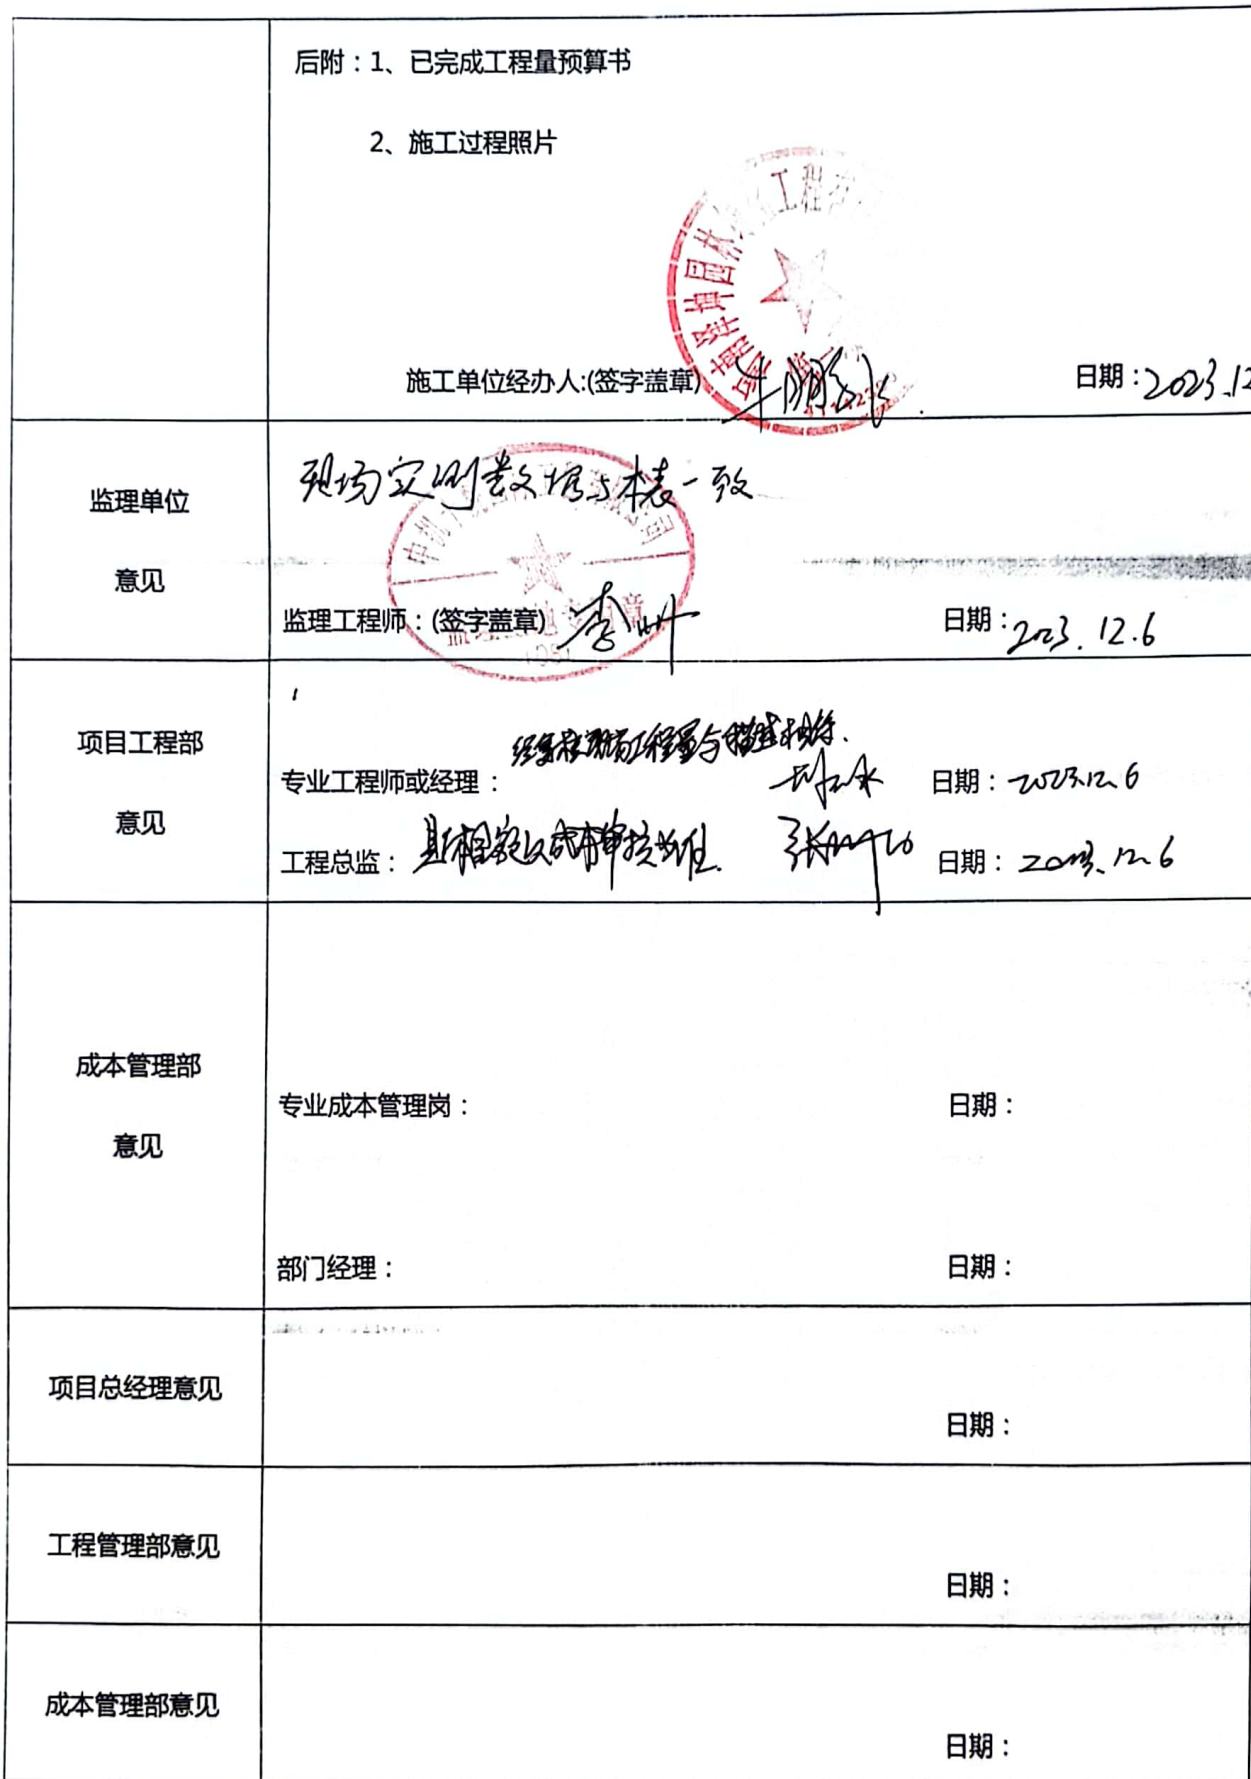 后附：1、已完成工程量预算书
2、施工过程照片
施工单位经办人:(签字盖章) 日期：2023.12
监理单位
意见
现场实测数据与本表一致
监理工程师：(签字盖章) 日期：2023.12.6
项目工程部
意见
经复核现场工程量与描述相符.
专业工程师或经理： 日期：2023.12.6
工程总监： 日期：2023.12.6
成本管理部
意见
专业成本管理岗： 日期：
部门经理： 日期：
项目总经理意见
日期：
工程管理部意见
日期：
成本管理部意见
日期：